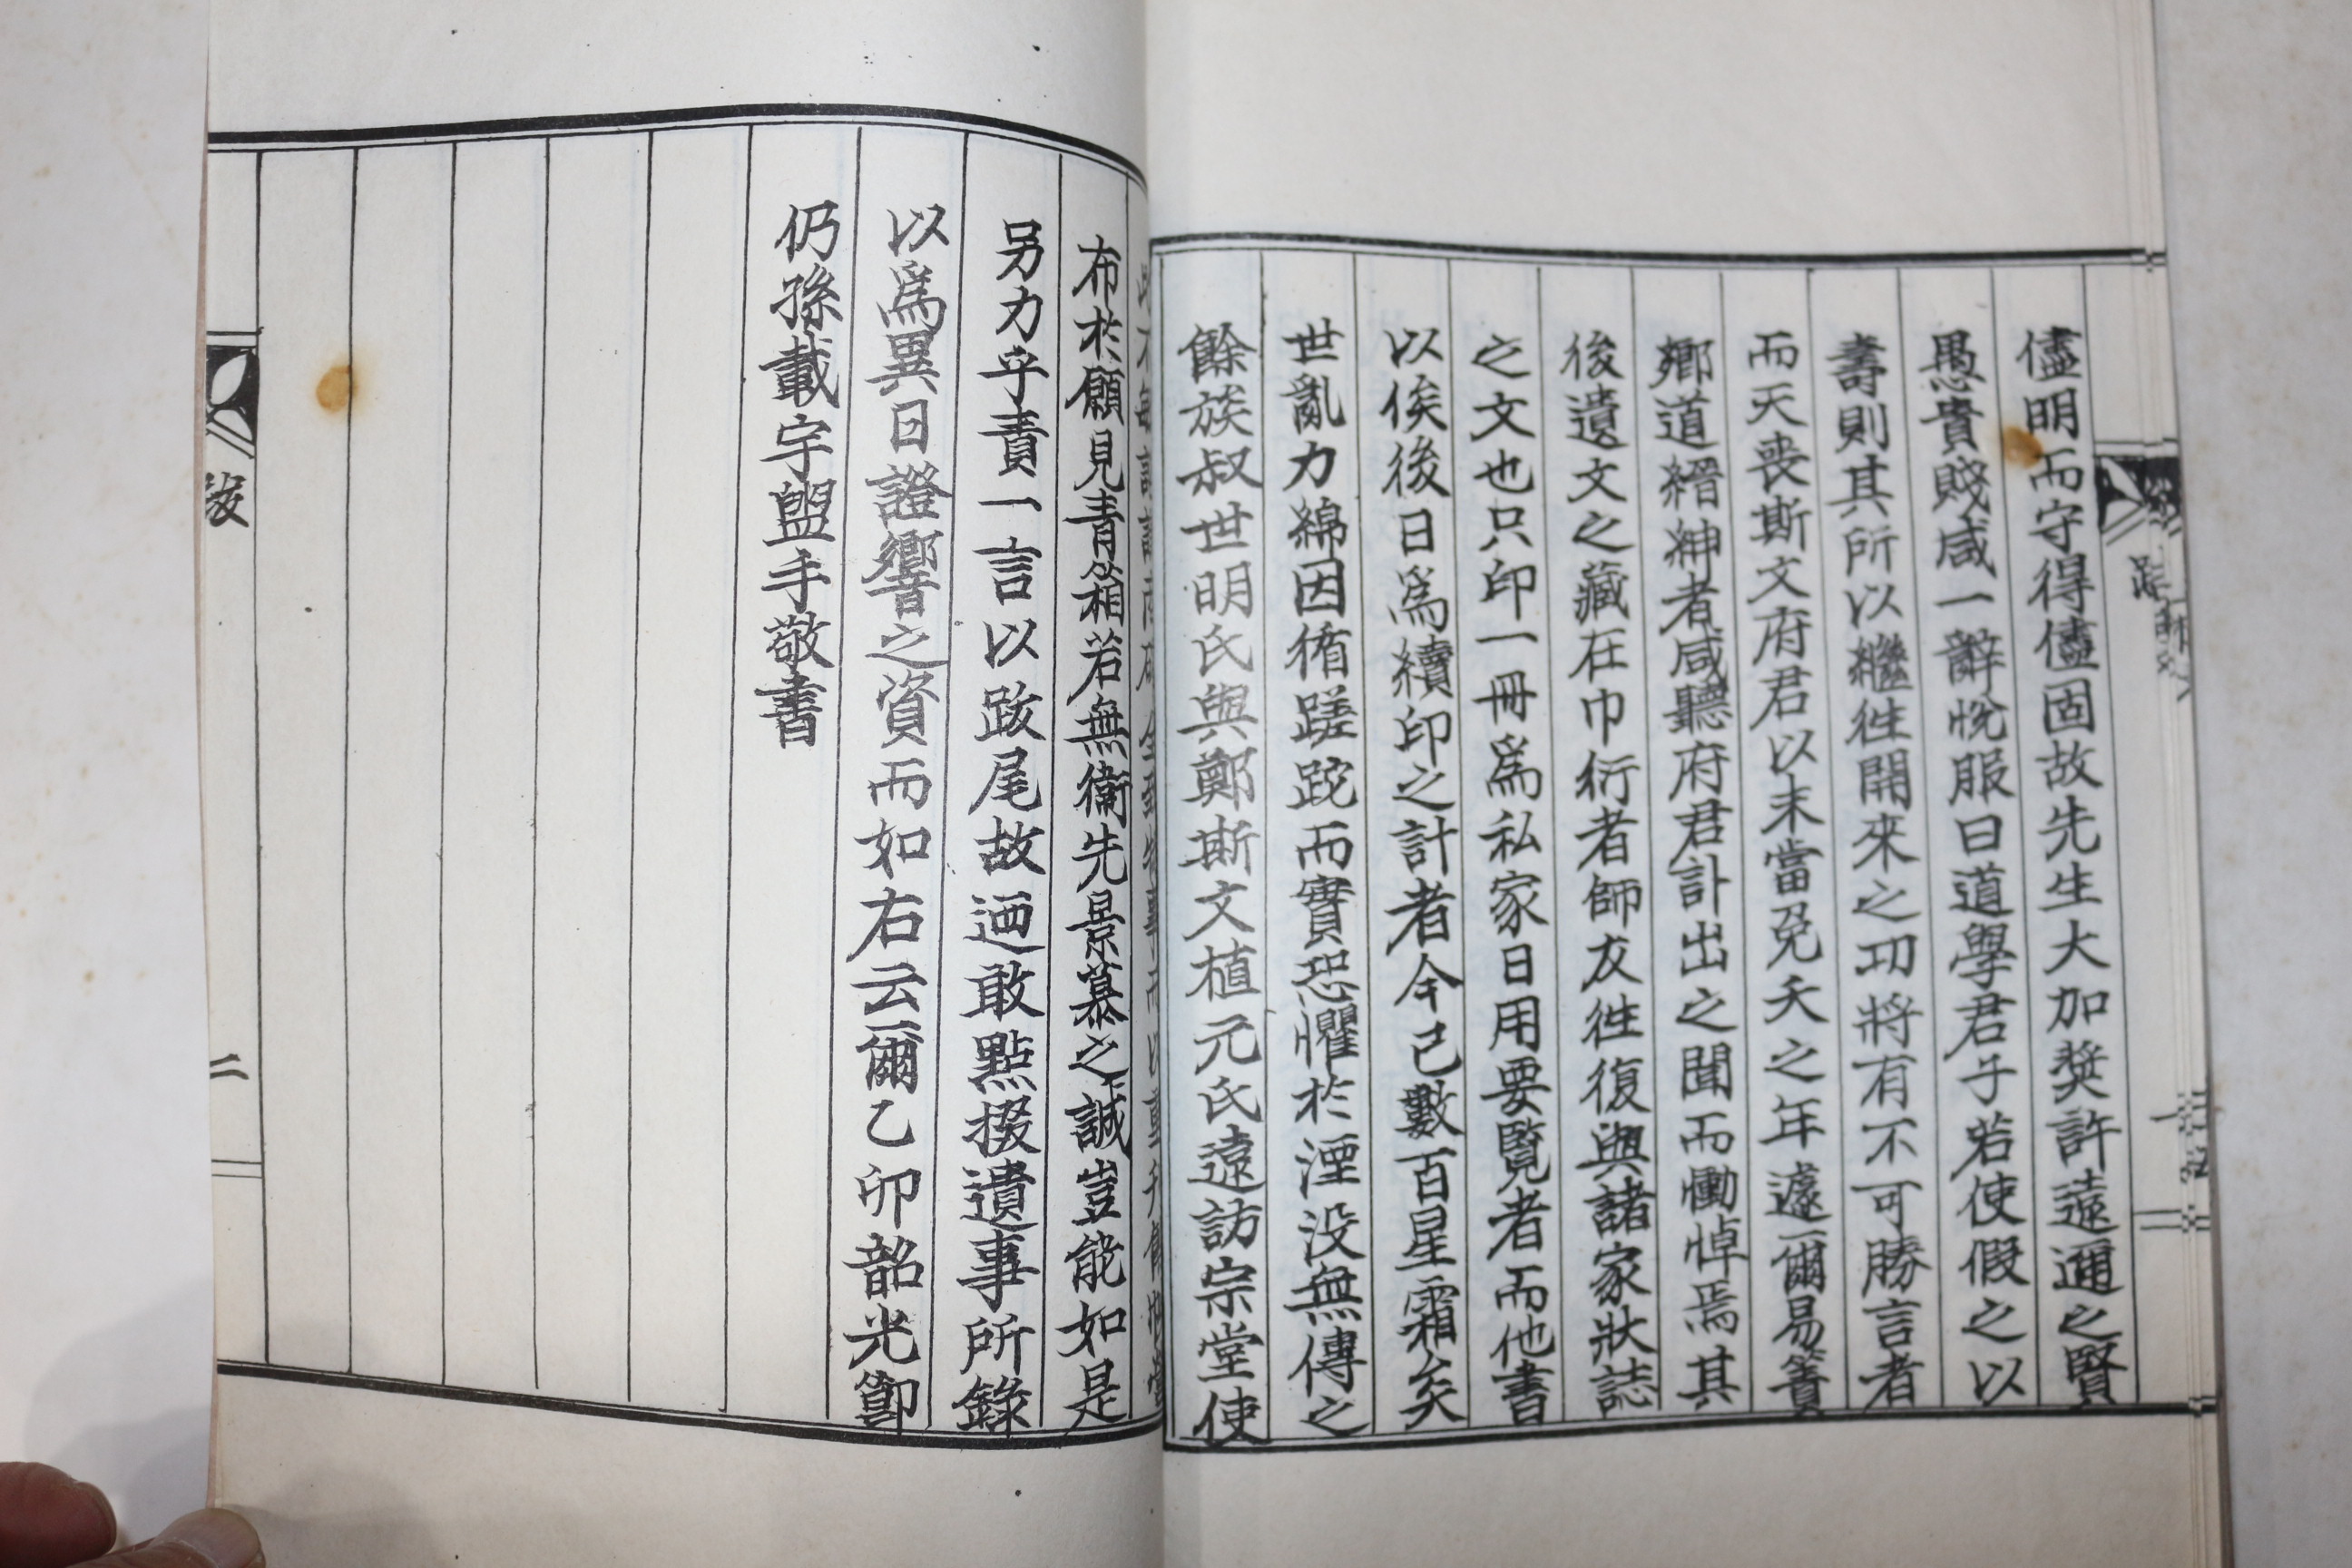 儘明而守得儘固故先生大加奬許遠邇之賢
愚貴賤咸一辭悅服曰道學君子若使假之以
壽則其所以繼徃開來之功將有不可勝言者
而天喪斯文府君以未當免夭之年遽爾易簀
鄕道縉紳者咸聽府君訃出之聞而慟悼焉其
後遺文之藏在巾衍者師友徃復與諸家狀誌
之文也只印一冊爲私家日用要覽者而他書
以俟後日爲續印之計者今已數百星霜矣
世亂力綿因循蹉跎而實恐懼於湮没無傳之
餘族叔世明氏與鄭斯文植元氏遠訪宗堂使
布於願見靑箱若無衛先景慕之誠豈能如是
另力乎責一言以跋尾故迺敢點掇遺事所錄
以爲異日證響之資而如右云爾乙卯韶光節
仍孫載宇盥手敬書
跋
二